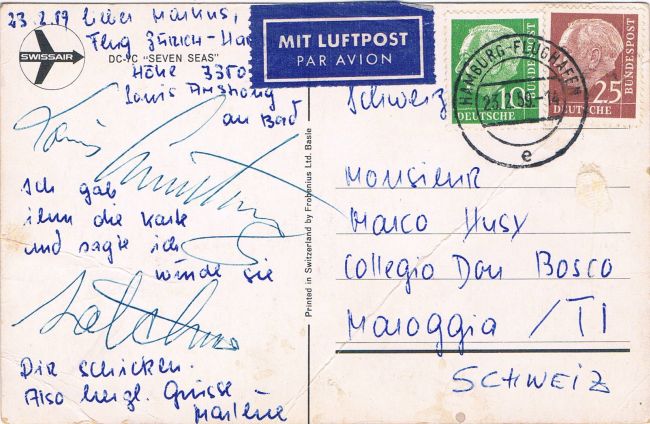 23.2.59 Lieber Markus,
Flug Zürich-Ha
SWISSAIR
DC-7C "SEVEN SEAS"
Höhe 3350
Louis Armstrong
an Bord
Louis Armstrong
Ich gab
ihm die Karte
und sagte ich
würde sie
Satchmo
Dir schicken.
Also herzl. Grüsse
Marlène
Printed in Switzerland by Frobenius Ltd. Basle
MIT LUFTPOST
PAR AVION
10
DEUTSCHE
BUNDESPOST
25
DEUTSCHE
HAMBURG-FLUGHAFEN
23.2.59.-14
e
Schweiz
Monsieur
Marco Husy
Collegio Don Bosco
Maroggia / TI
SCHWEIZ